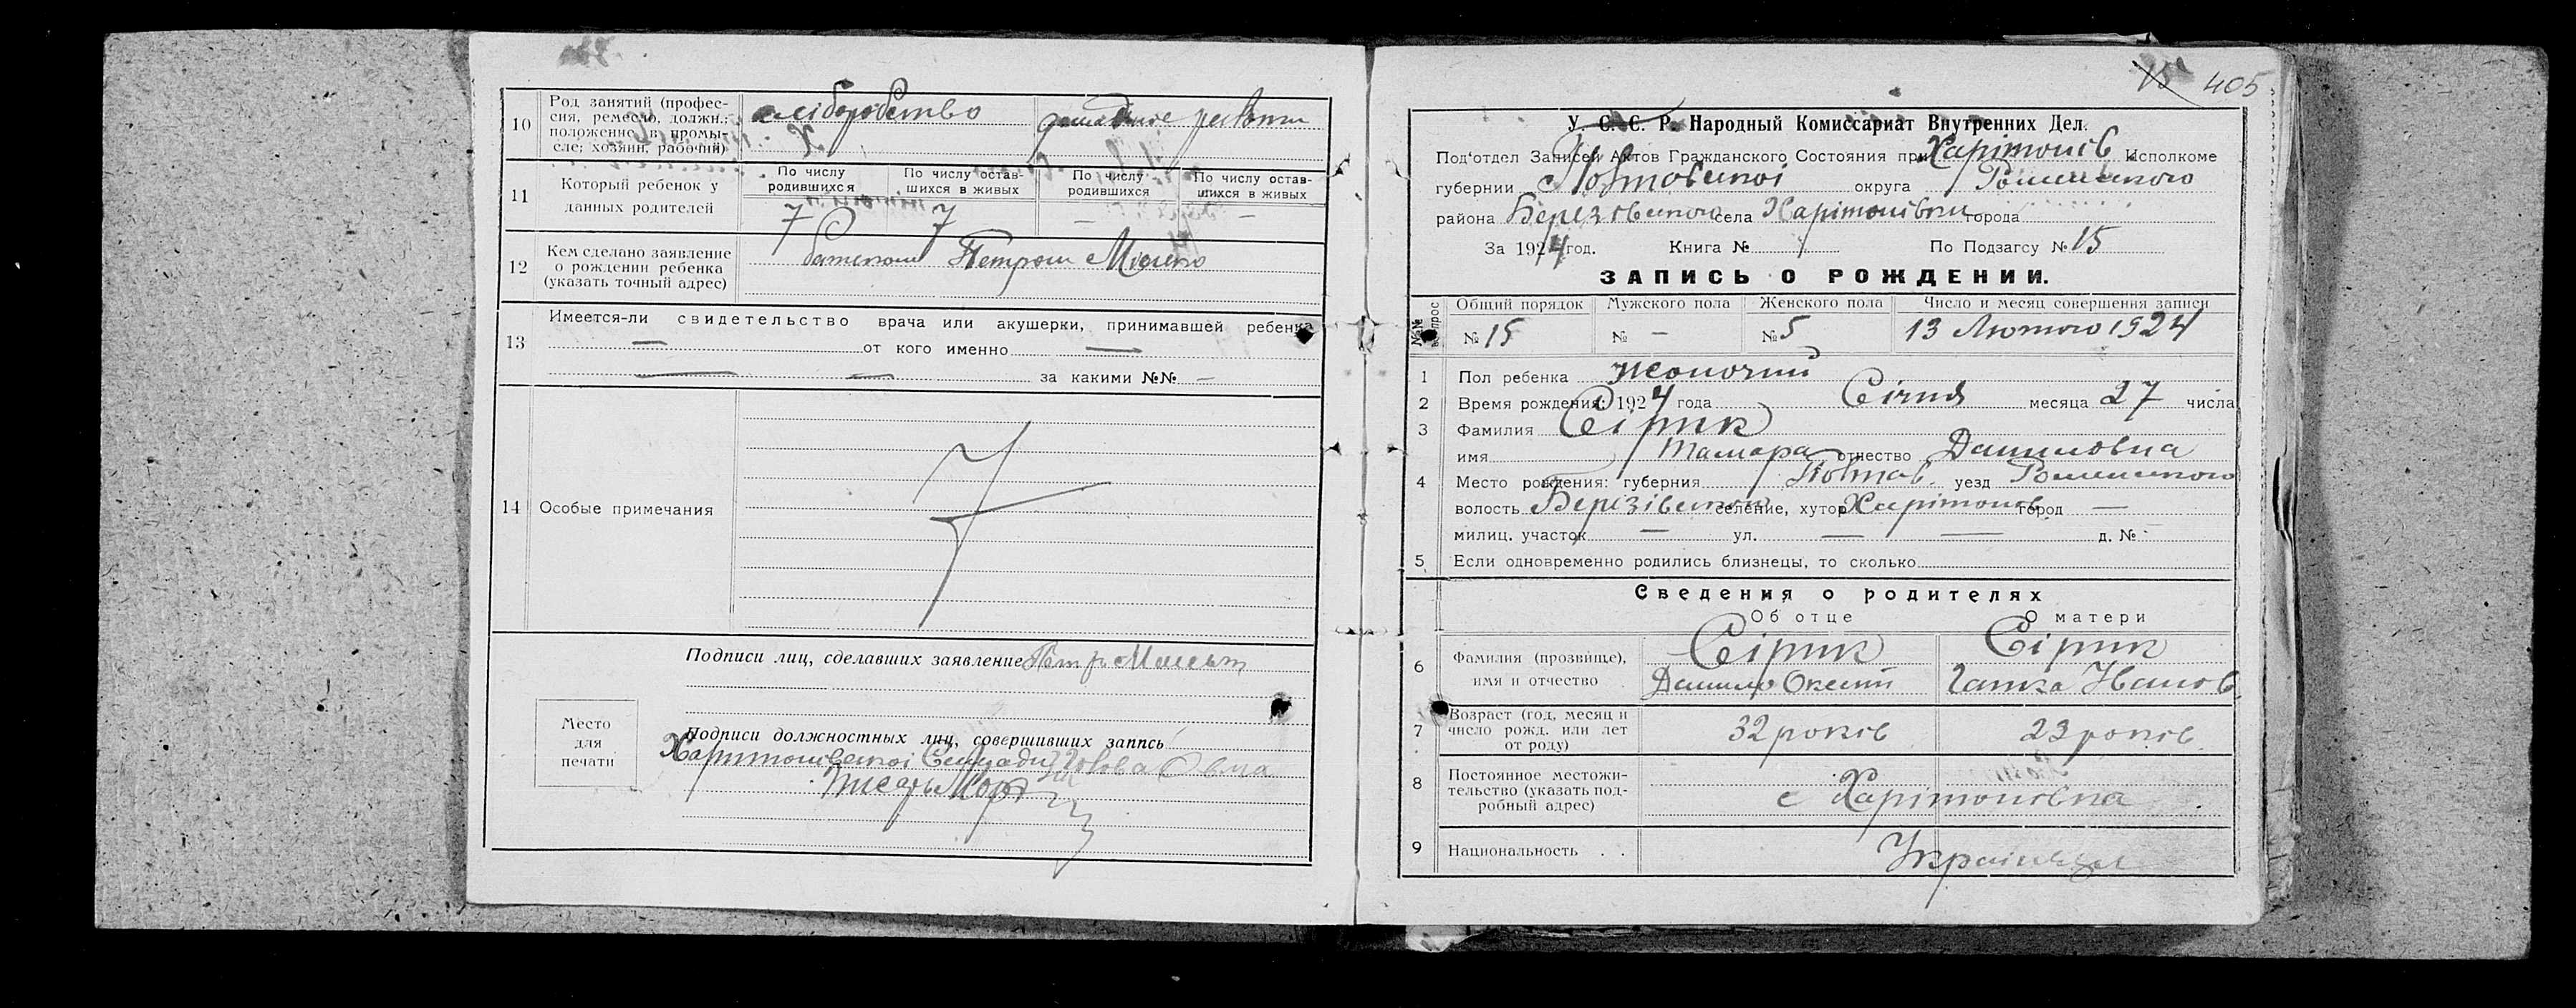 10 Род занятий (профес-
сия, ремесло, должн.;
положение в промы-
сле; хозяин, рабочий)
хліборобство
11 Который ребенок у
данных родителей
По числу
родившихся
По числу остав-
шихся в живых
По числу
родившихся
По числу остав-
шихся в живых
7 7 — —
12 Кем сделано заявление
о рождении ребенка
(указать точный адрес)
батьком Петром
13 Имеется-ли свидетельство врача или акушерки, принимавшей ребенка
— от кого именно —
— — за какими №№ —
14 Особые примечания
Подписи лиц, сделавших заявление Петр
Место
для
печати
Подписи должностных лиц, совершивших запись
Харитонівської Сільради Голова
Писарь
15 405
У. С. С. Р. Народный Комиссариат Внутренних Дел.
Под'отдел Записей Актов Гражданского Состояния при Харітонів Исполкоме
губернии Полтавської округа Роменського
района Березівського села Харітонівки города
За 1924 год. Книга № По Подзагсу № 15
ЗАПИСЬ О РОЖДЕНИИ.
№№ вопрос
Общий порядок Мужского пола Женского пола Число и месяц совершения записи
№ 15 № — № 5 13 Лютого 1924
1 Пол ребенка жоночий
2 Время рождения: 1924 года Січня месяца 27 числа
3 Фамилия Сірик
имя Тамара отчество Даниловна
4 Место рождения: губерния Полтав. уезд Роменського
волость Березівської селение, хутор Харітонів город —
милиц. участок — ул. — — д. № -
5 Если одновременно родились близнецы, то сколько
Сведения о родителях
Об отце О матери
6 Фамилия (прозвище),
имя и отчество
Сірик Сірик
Данило Ганка Іванов
7 Возраст (год, месяц и
число рожд. или лет
от роду)
32 років 23 років
8 Постоянное местожи-
тельство (указать под-
робный адрес)
с Харітоновка
9 Национальность . .
Українці